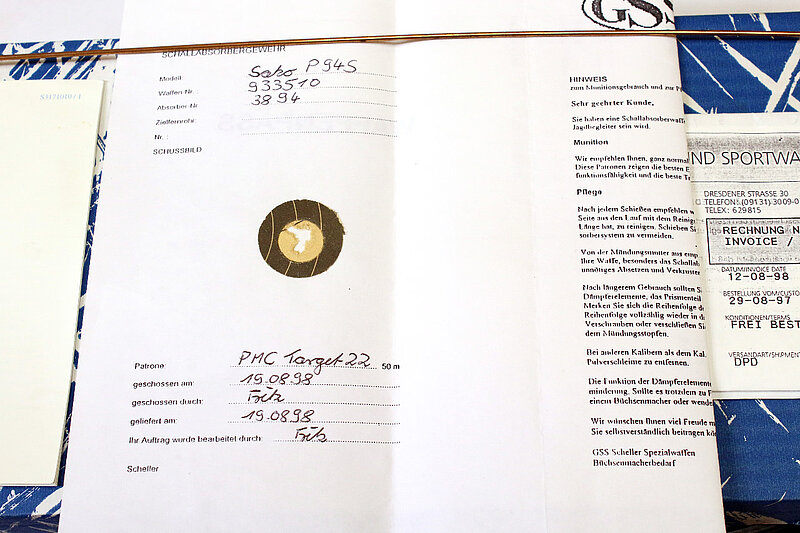 S3171019/1
SCHALLABSORBERGEWEHR
Modell: Sako P94S
Waffen Nr.: 933510
Absorber Nr. 3894
Zielfernrohr:
Nr.:
SCHUSSBILD
Patrone: PMC Target 22 50 m
geschossen am: 19.08.98
geschossen durch: Fritz
geliefert am: 19.08.98
Ihr Auftrag wurde bearbeitet durch: Fritz
Scheller
GSS
HINWEIS
zum Munitionsgebrauch und zur
Sehr geehrter Kunde,
Sie haben eine Schallabsorberwaffe
Jagdbegleiter sein wird.
Munition
Wir empfehlen Ihnen, ganz normal
Diese Patronen zeigen die besten
funktionsfähigkeit und die beste
Pflege
Nach jedem Schießen empfehlen
Seite aus den Lauf mit dem
Länge hat, zu reinigen. Schieben
sorbersystem zu vermeiden.
Von der Mündungsmutter aus
Ihre Waffe, besonders das
unnötiges Absetzen und
Nach längerem Gebrauch sollten
Dämpferelemente, das Prismenteil
Merken Sie sich die Reihenfolge
Reihenfolge vollzählig wieder in
Verschrauben oder verschließen
dem Mündungsstopfen.
Bei anderen Kalibern als dem Kal.
Pulverschleime zu entfernen.
Die Funktion der Dämpferelemente
minderung. Sollte es trotzdem zu
einem Büchsenmacher oder
Wir wünschen Ihnen viel Freude
Sie selbstverständlich beitragen
GSS Scheller Spezialwaffen
Büchsenmacherbedarf
UND SPORTWA
DRESDENER STRASSE 30
TELEFON (09131) 3009-0
TELEX: 629815
RECHNUNG N
INVOICE /
DATUM/INVOICE DATE
12-08-98
BESTELLUNG VOM/CUSTO
29-08-97
KONDITIONEN/TERMS
FREI BEST
VERSANDART/SHIPMENT
DPD